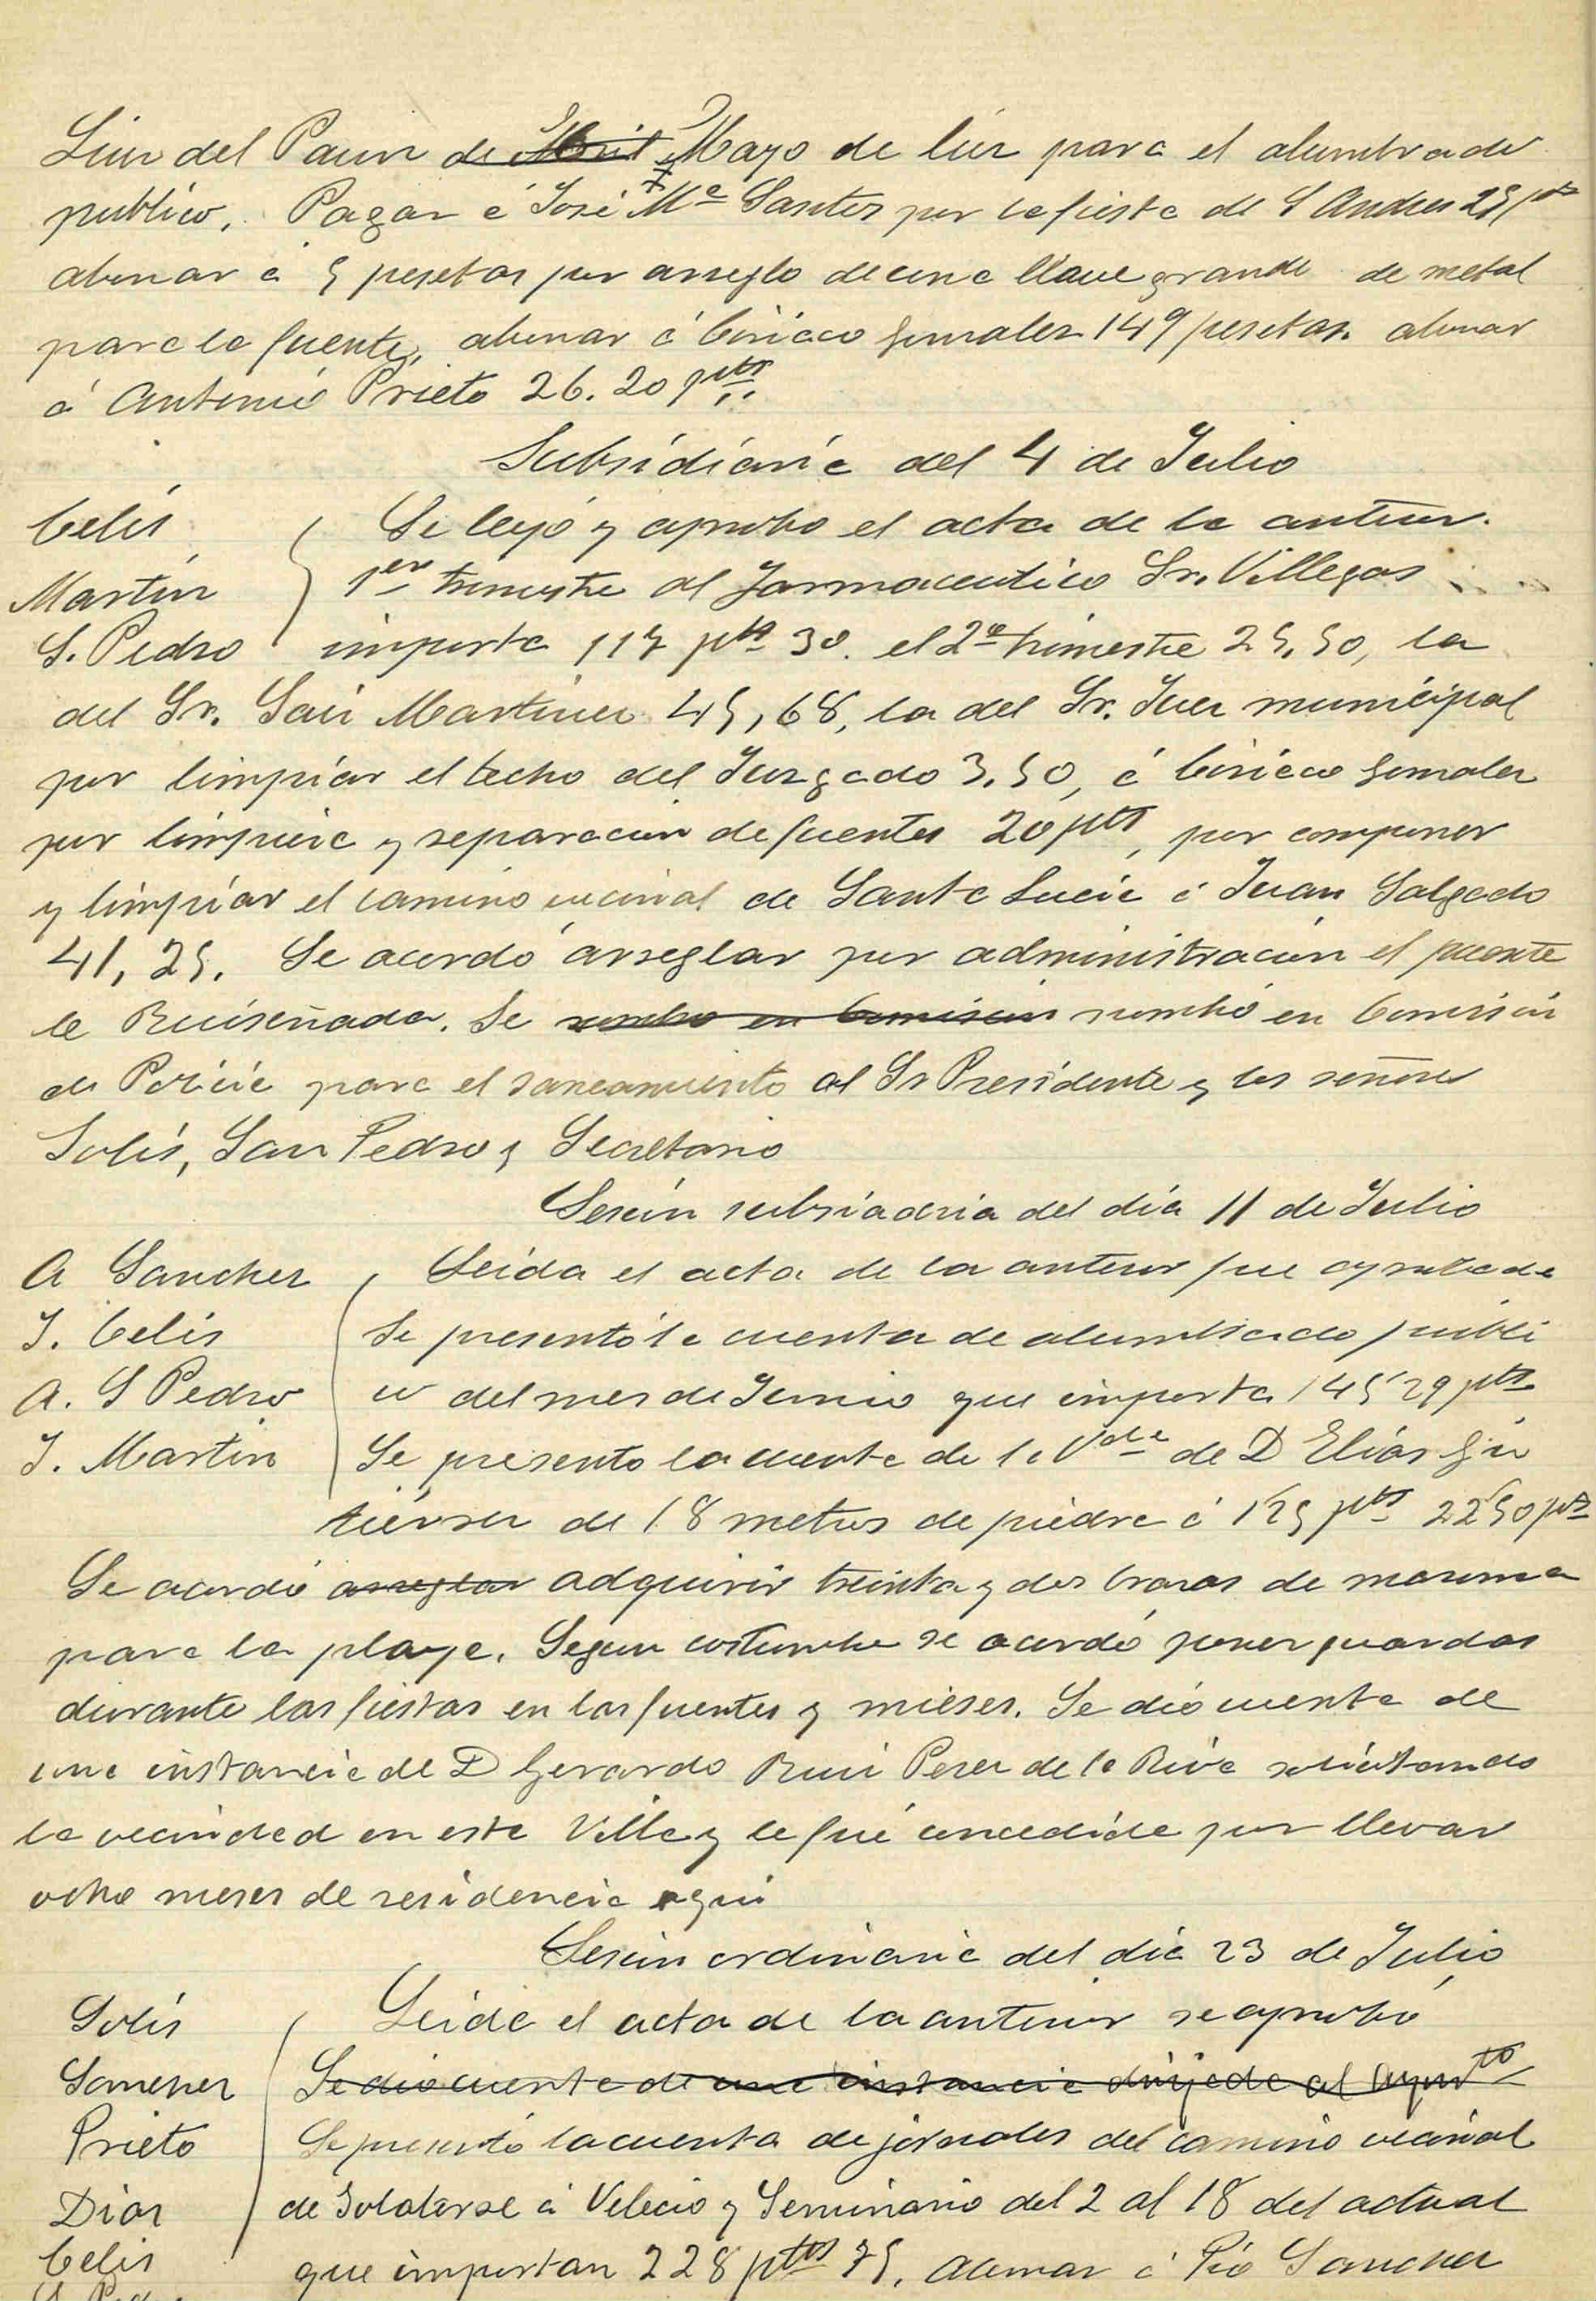 del ~~de Abril y~~ Mayo de luz para el alumbrado
publico. Pagar á José Mª Santos por la fiesta de S Andres 25 pts
abonar á 5 pesetas por arreglo de una llave grande de metal
para la fuente, abonar á Ciriaco Gonzalez 149 pesetas. abonar
á Antonio Prieto 26.20 pts.
Subsidiaria del 4 de Julio
Celis Se leyó y aprobo el acta de la anterior.
Martín 1er trimestre al farmaceutico Sr. Villegas
S. Pedro importa 117 pts 30. el 2º trimestre 25.50, la
del Sr. Saiz Martinez 45,68, la del Sr. Juez municipal
por limpiar el techo del Juzgado 3.50, á Ciriaco Gonzalez
por limpieza y reparacion de fuentes 20 pts, por componer
y limpiar el camino vecinal de Santa Lucia á Juan Salgado
41,25. Se acordó arreglar por administración el puente
la Ruiseñada. Se ~~nombro en Comision~~ nombró en Comisión
de Policia para el saneamiento al Sr Presidente y los señores
Solís, San Pedro y Secretario
Sesión subsidiaria del día 11 de Julio
A Sanchez Leida el acta de la anterior fue aprobada
J. Celis Se presentó la cuenta de alumbrado públi
A. S Pedro co del mes de Junio que importa 145'29 pts
J. Martin Se presento la cuenta de la Vda de D Elías Gu
tiérrez de 18 metros de piedra á 1'25 pts 22'50 pts
Se acordó ~~arreglar~~ adquirir treinta y dos brazas de maroma
para la playa. Segun costumbre se acordó poner guardas
durante las fiestas en las fuentes y mieses. Se dió cuenta de
una instancia de D Gerardo Ruiz Perez de la Riva solicitando
la vecindad en esta Villa y le fué concedida por llevar
ocho meses de residencia aqui
Sesión ordinaria del dia 23 de Julio
Solís Leida el acta de la anterior se aprobó
Sanchez ~~Se dio cuenta de una instancia dirijida al Ayunto~~
Prieto Se presentó la cuenta de jornales del camino vecinal
Diaz de á Velecio y Seminario del 2 al 18 del actual
Celis que importan 228 ptas 75. Abonar á Pío Sanchez
S. Pedro